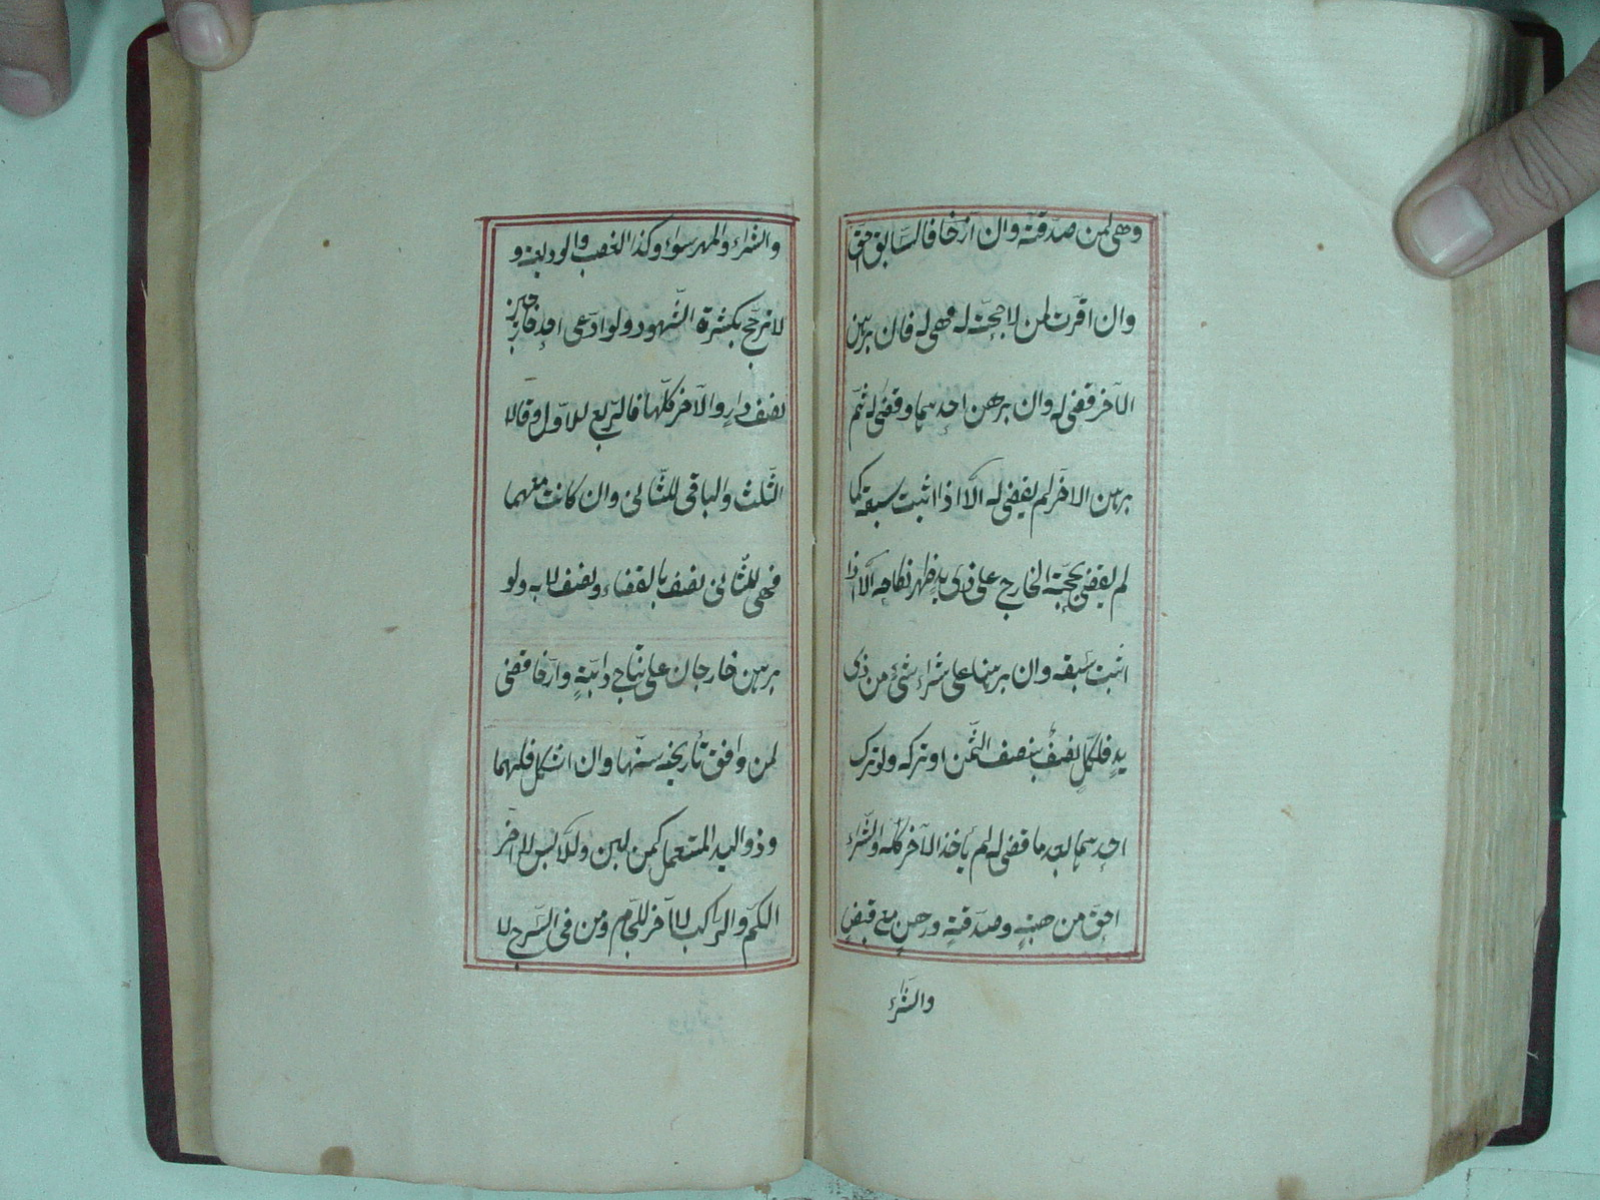 وهي لمن صدّقته وان ارّخا فالسّابق احق
وان اقرّت لمن لا حجّة له فهي له فان برهن
الآخر قضى له وان برهن احدهما وقضى له ثمّ
برهن الآخر لم يقض له الّا اذا اثبت سبقه كما
لم يقض بحجّة الخارج على ذى يدٍ ظهر نكاحه الّا اذا
اثبت سبقه وان برهنا على شراء شئ من ذى
يدٍ فلكلٍّ نصفٌ بنصف الثّمن او تركه ولو ترك
احدهما بعد ما قضى له لم يأخذ الآخر كلّه والشّراء
احقّ من هبةٍ وصدقةٍ ورهنٍ مع قبضٍ
والشراء
والشّراء والمهر سواء وكذا الغصب والوديعة و
لا ترجّح بكثرة الشّهود ولو ادّعى احد خارجين
نصف دارٍ والآخر كلّها فالرّبع للاوّل وقالا
الثّلث والباقى للثّانى وان كانت معهما
فهى للثّانى نصف بالقضاء ونصف لا به ولو
برهن خارجان على نتاج دابّةٍ وارّخا قضى
لمن وافق تأريخه سنّها وان اشكل فلهما
وذو اليد المستعمل كمن لبن واللّابس لا آخذ
الكمّ والرّاكب لا آخذ اللّجام ومن فى السّرج لا